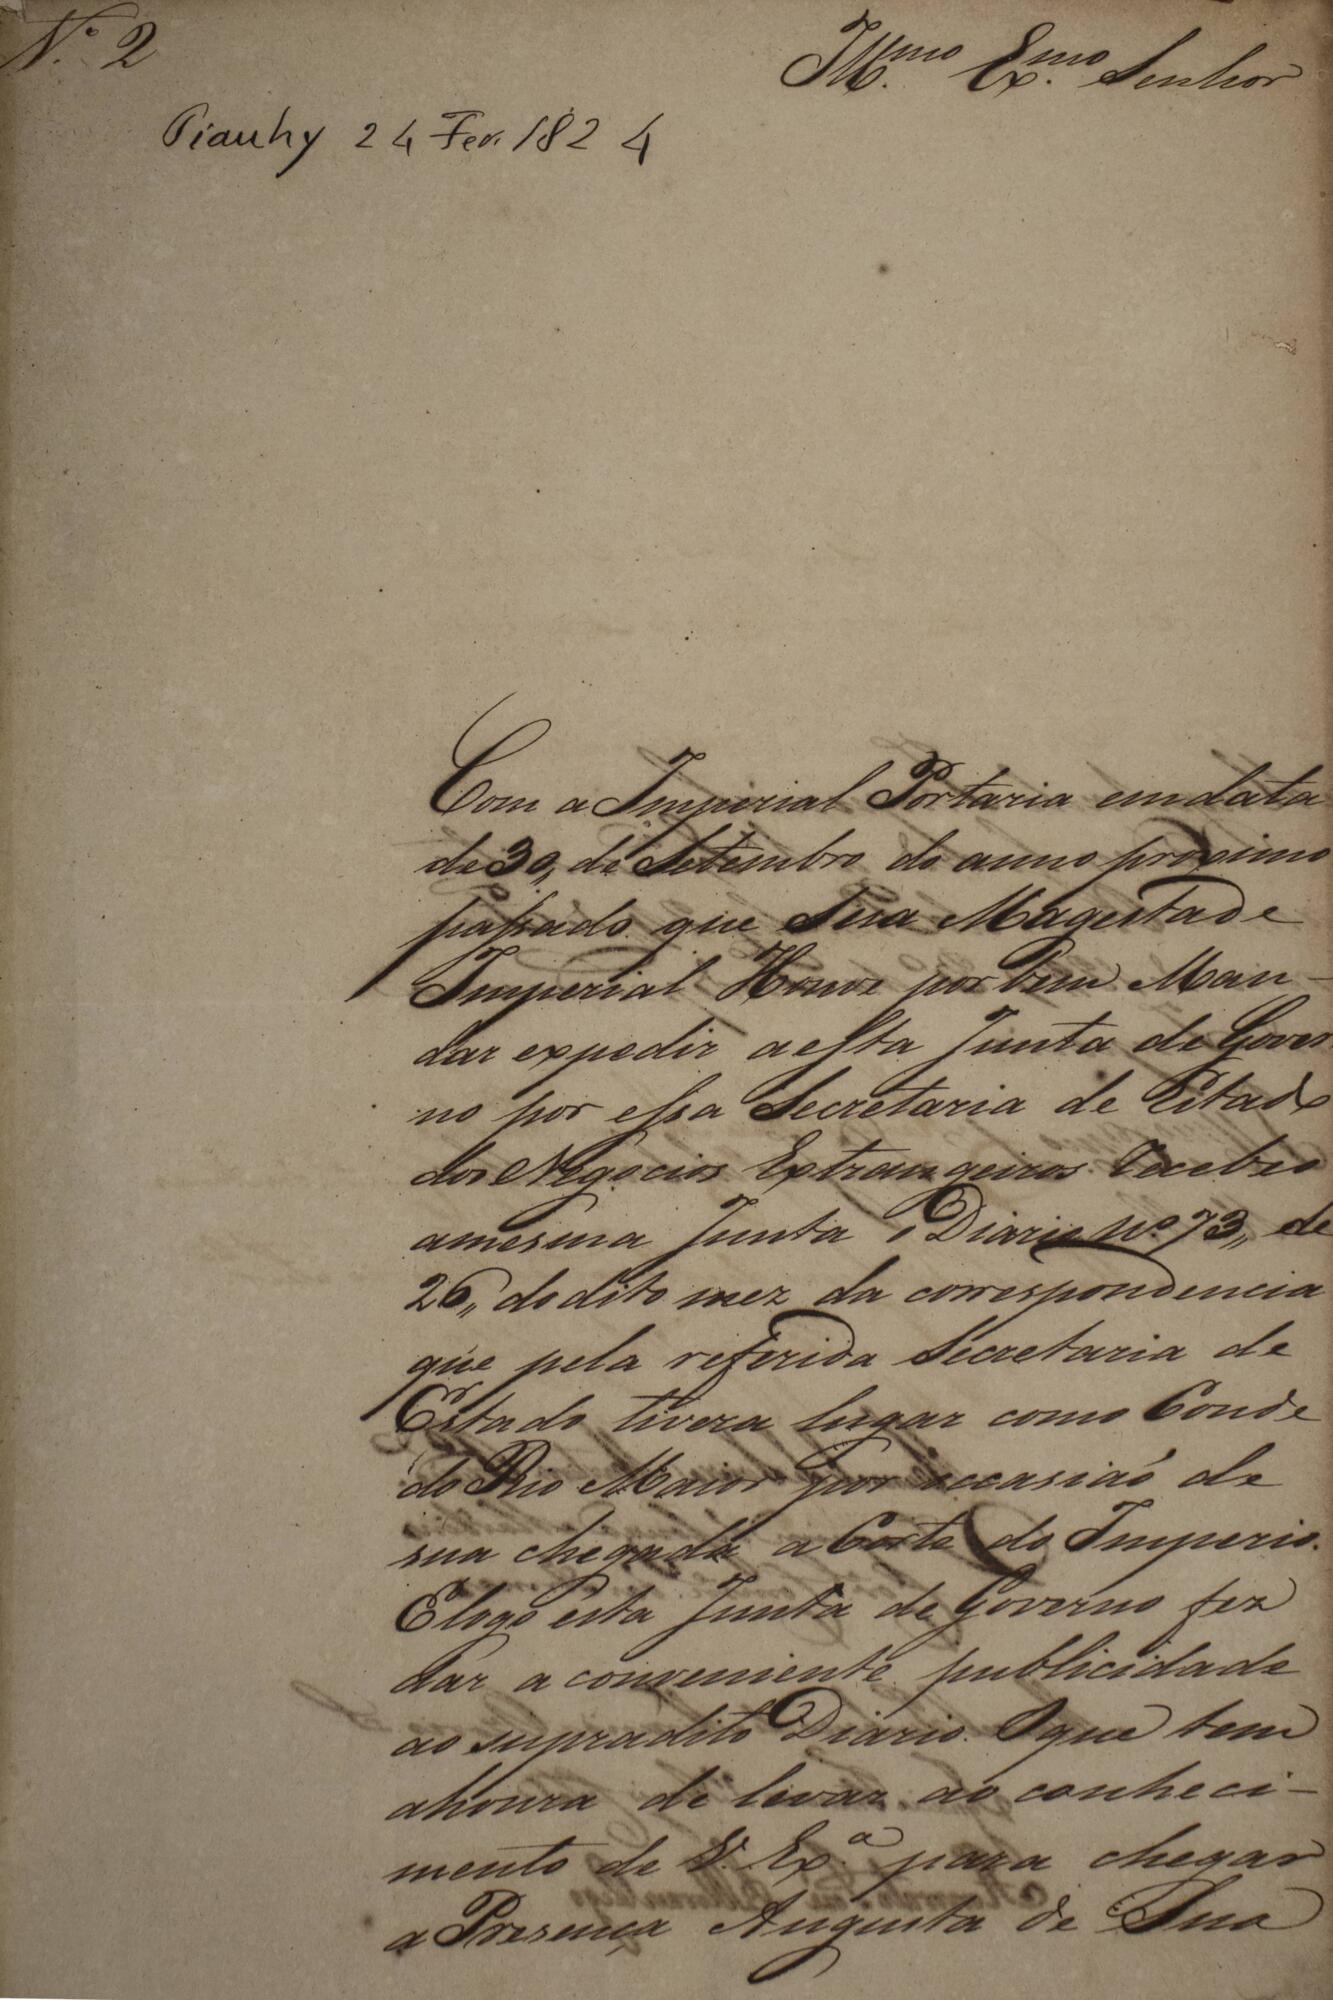 N.º 2
Ill.mo Ex.mo Senhor
Piauhy 24 Fev. 1824
Com a Imperial Portaria em data
de 30,, de Setembro do anno proximo
passado que Sua Magestade
Imperial Houve por bem Man-
dar expedir a esta Junta de Gover
no por essa Secretaria de Estado
dos Negocios Extrangeiros. Recebeo
amesma Junta o Diario N.º 73,, de
26,, do dito mez da correspondencia
que pela referida Secretaria de
Estado tivera lugar como Conde
do Rio Maior por occasiaõ de
sua chegada a Corte do Imperio.
Elogo esta Junta de Governo fez
dar a conveniente publicidade
ao supradito Diario. O que tem
ahonra de levar ao conheci-
mento de V. Ex.ª para chegar
a Presença Augusta de Sua